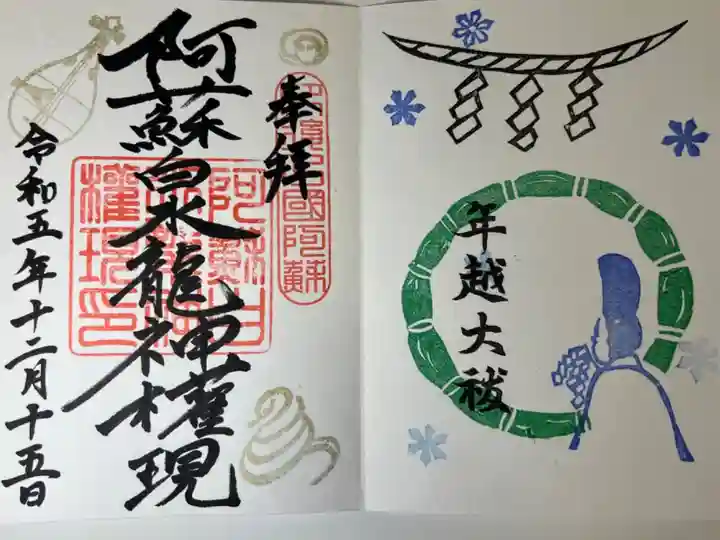 年越大祓
奉拝
阿蘇白水龍神權現
令和五年十二月十五日
國阿蘇
阿蘇白
水龍神
權現印